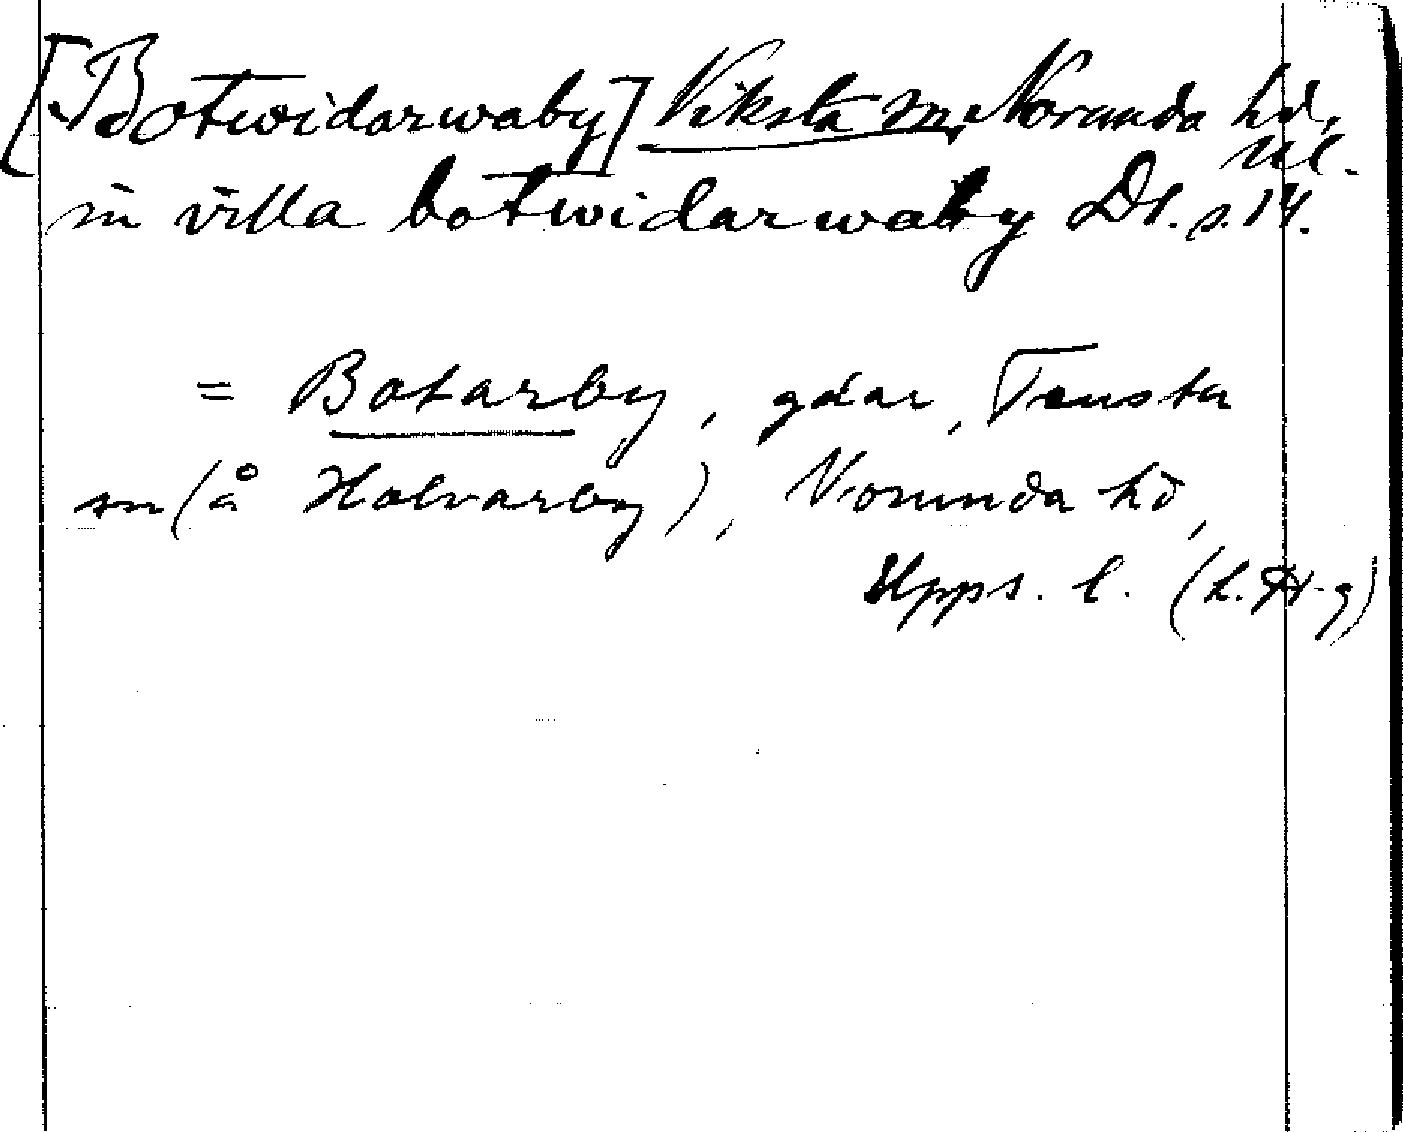 [Botwidarwaby] Viksta sn, Norunda hd,
Ul.
in villa botwidarwaby Dl. s. 14.
= Botarby, gdar, Tensta
sn (å Holvarby), Norunda hd,
Upps. l. (L. H-g)